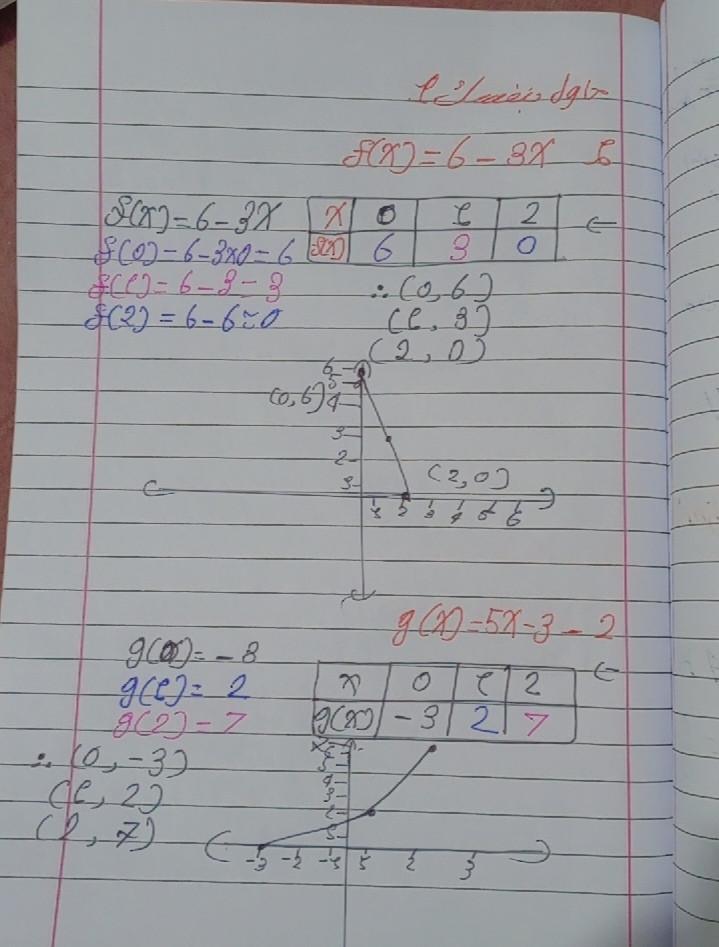 f(x) = 6 - 3x
f(x) = 6 - 3x
f(0) = 6 - 3x0 = 6
f(1) = 6 - 3 = 3
f(2) = 6 - 6 = 0
x 0 1 2
f(x) 6 3 0
∴ (0, 6)
(1, 3)
(2, 0)
6
5
(0, 6) 4
3
2
(2, 0)
2 3 4 5 6
g(x) = 5x - 3 - 2
g(0) = -3
g(1) = 2
g(2) = 7
x 0 1 2
g(x) -3 2 7
∴ (0, -3)
(1, 2)
(2, 7)
-3 -2 -1 1 2 3